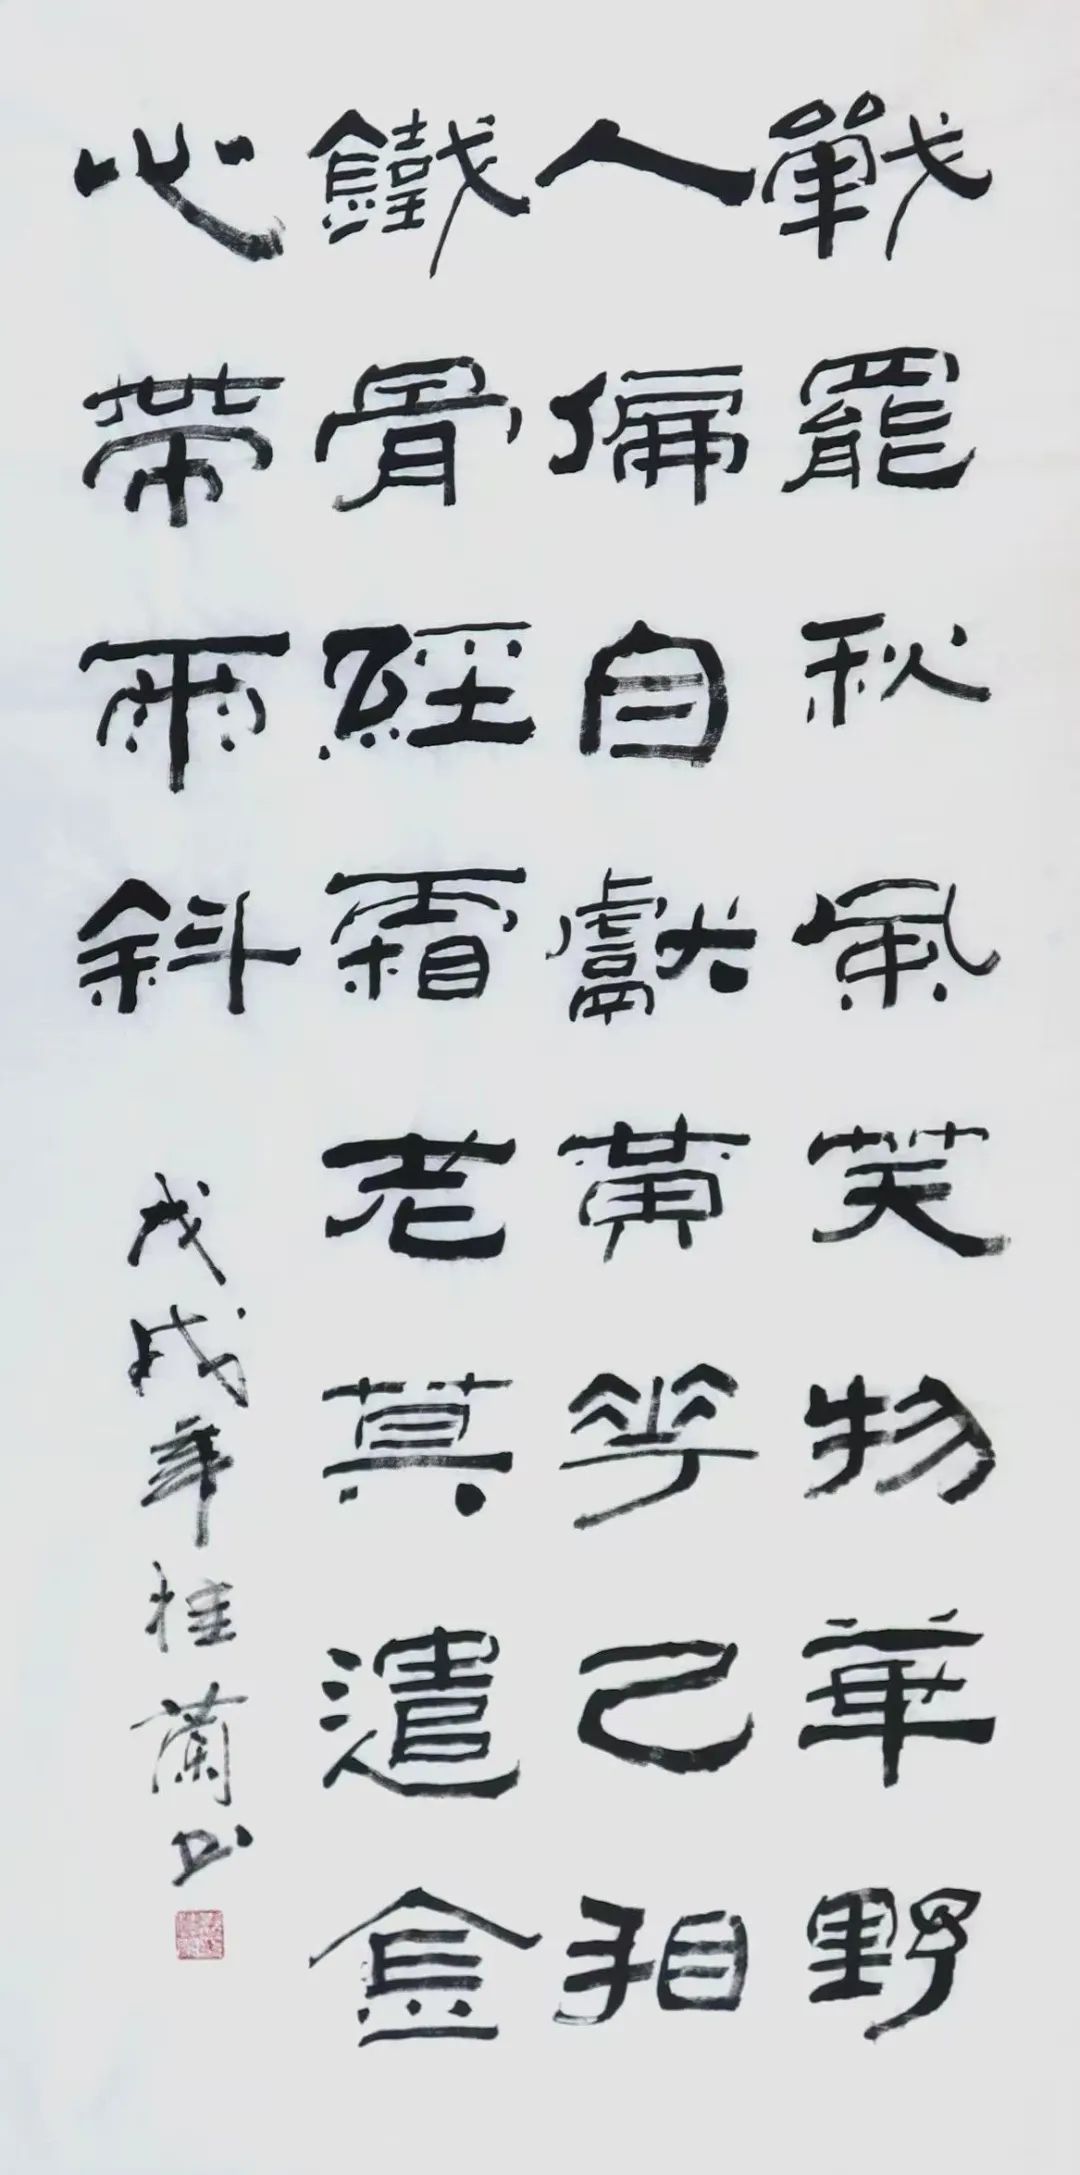 戰罷秋風笑物華野
人偏自獻黃花已看
鐵骨經霜老莫遣金
心帶雨斜
戊戌年桂蘭书